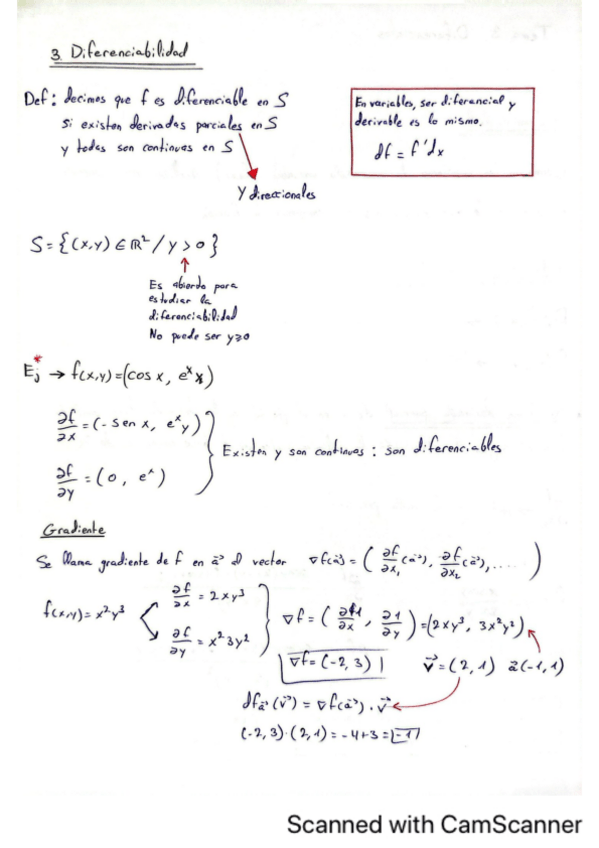 3. Diferenciabilidad
Def: decimos que f es diferenciable en S
si existen derivadas parciales en S
y todas son continuas en S
Y direccionales
En variables, ser diferencial y
derivable es lo mismo.
df = f'dx
S = {(x,y) ∈ ℝ² / y > 0}
Es abierto para
estudiar la
diferenciabilidad
No puede ser y≥0
Ej* → f(x,y) = (cos x, eˣ y)
∂f/∂x = (-sen x, eˣ y)
∂f/∂y = (0, eˣ)
Existen y son continuas : son diferenciables
Gradiente
Se llama gradiente de f en a⃗ al vector ∇f(a⃗) = ( ∂f/∂x₁ (a⃗), ∂f/∂x₂ (a⃗), ..... )
f(x,y) = x²y³
∂f/∂x = 2xy³
∂f/∂y = x² 3y²
∇f = ( ∂f/∂x , ∂f/∂y ) = (2xy³, 3x²y²)
∇f = (-2, 3)
v⃗ = (2, 1) a⃗(-1, 1)
df a⃗ (v⃗) = ∇f(a⃗) · v⃗
(-2, 3) · (2, 1) = -4+3 = -1
Scanned with CamScanner